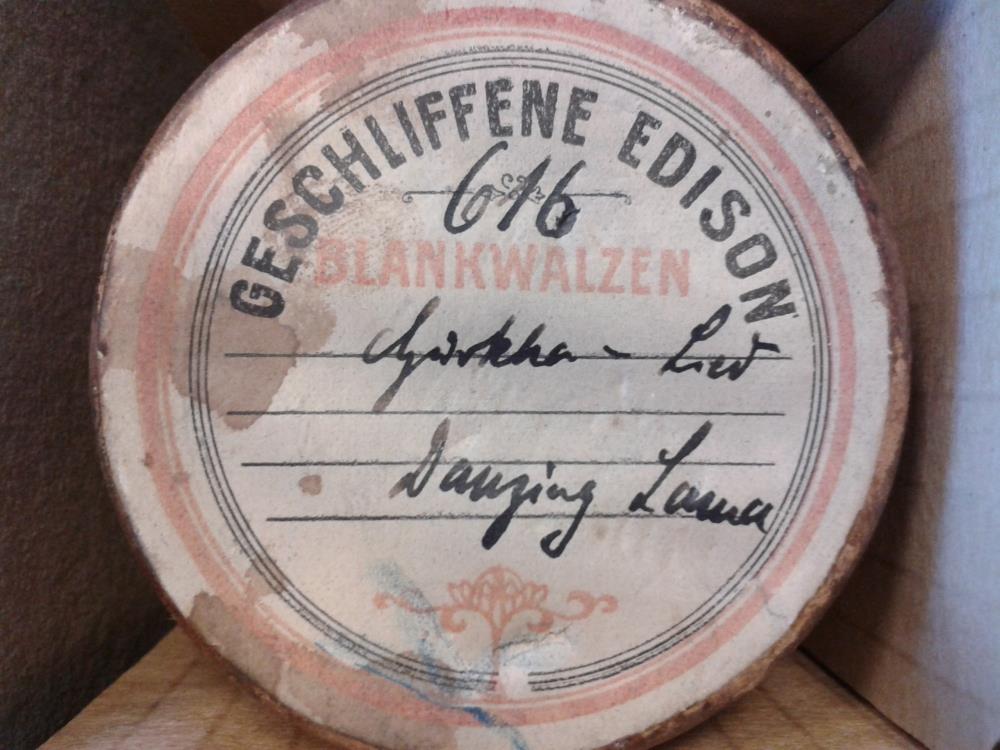 GESCHLIFFENE EDISON
616
BLANKWALZEN
Ghurkha - Lied
Danzing Lama